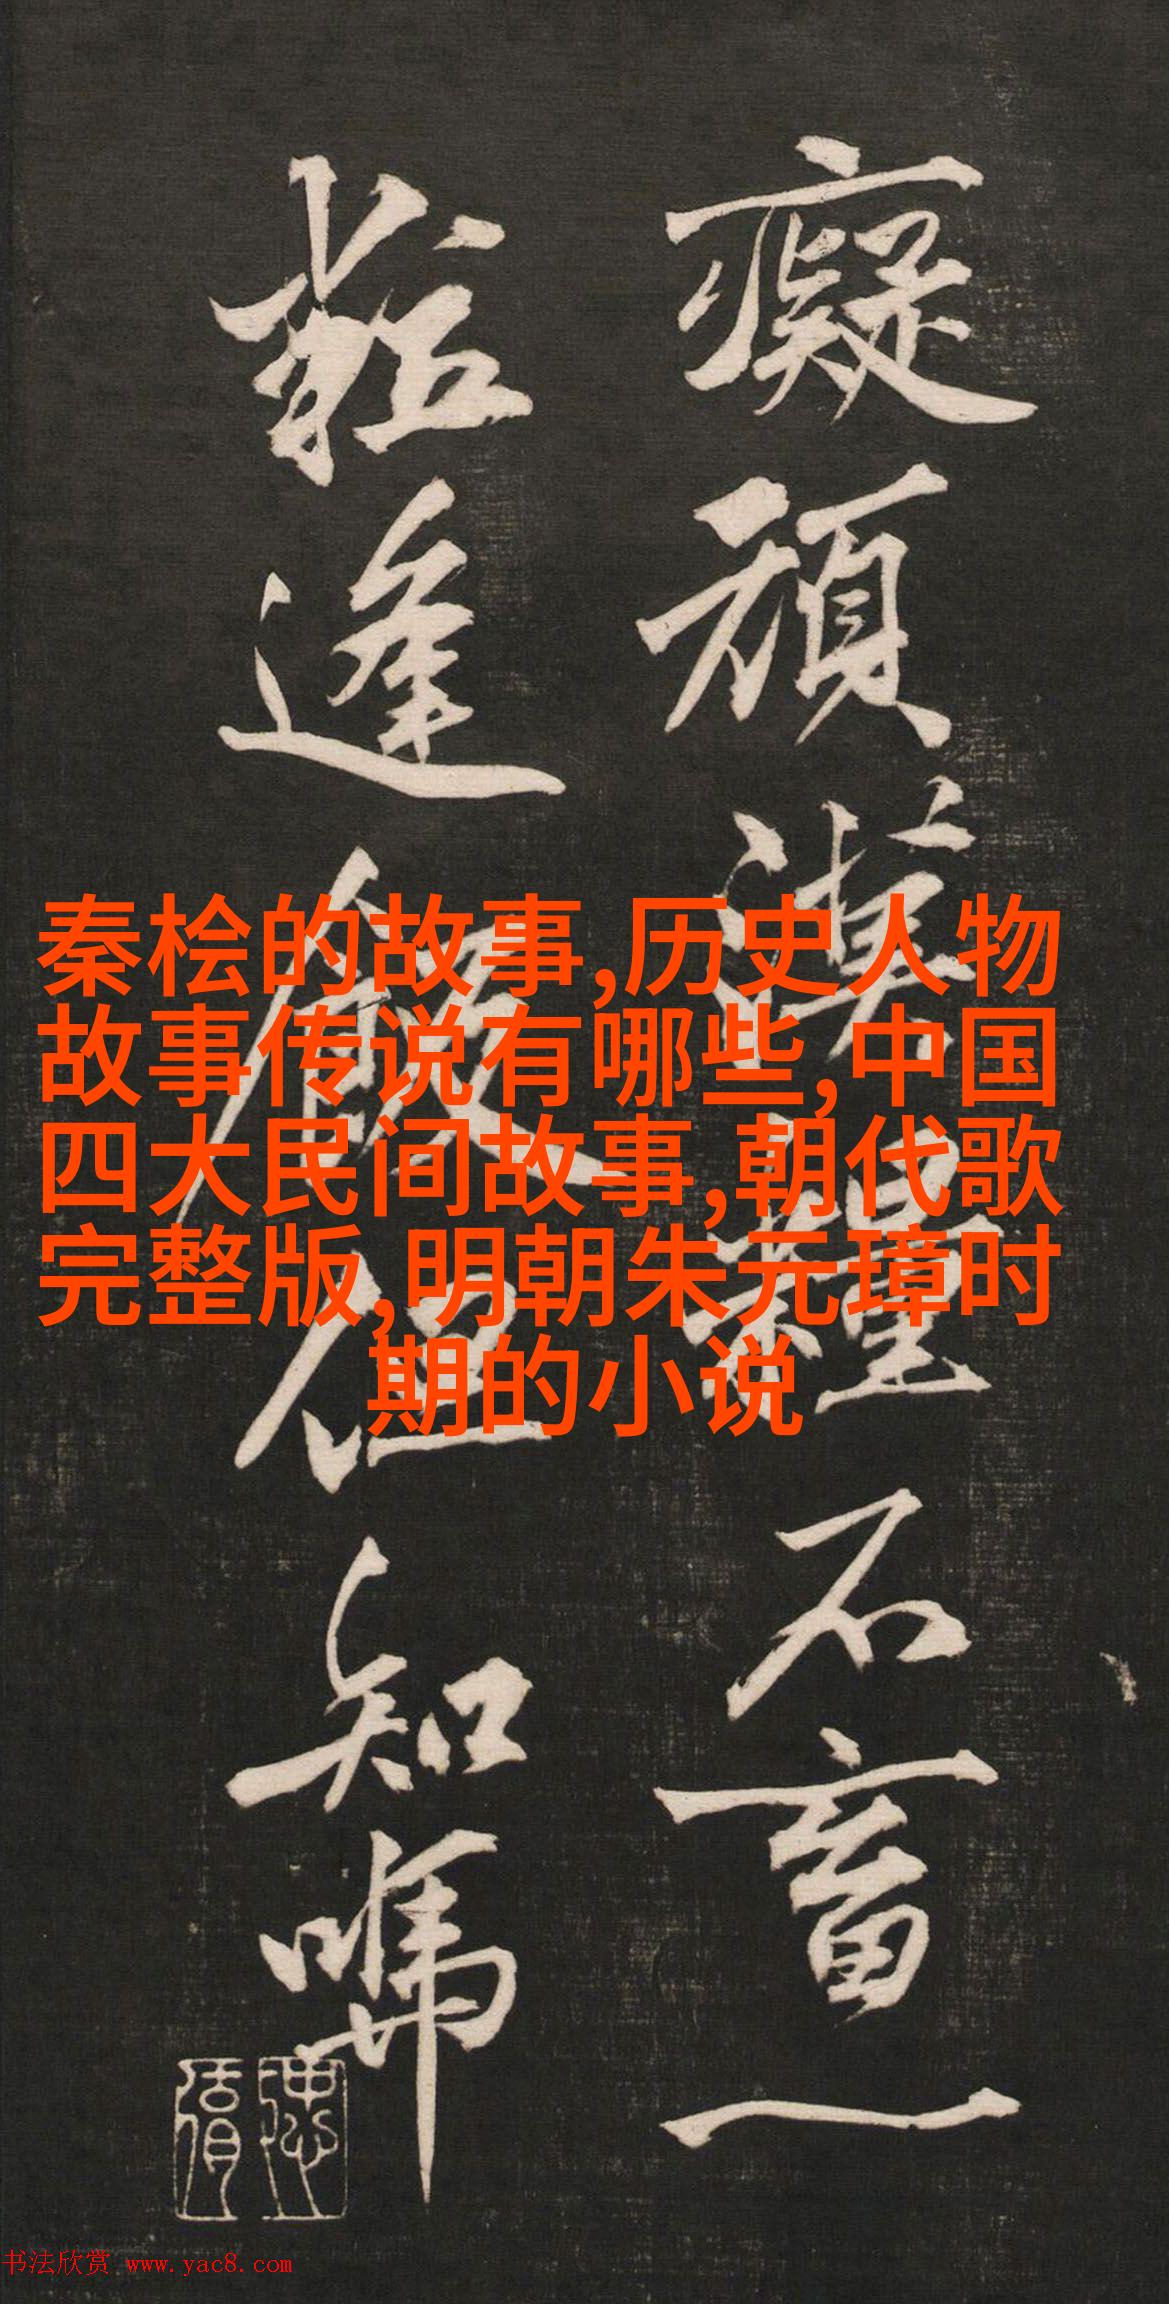 癡頑漢糧不畜一
粒逢飯但知
秦桧的故事,历史人物
故事传说有哪些,中国
四大民间故事,朝代歌
完整版,明朝朱元璋时
期的小说
书法欣赏 www.yac8.com